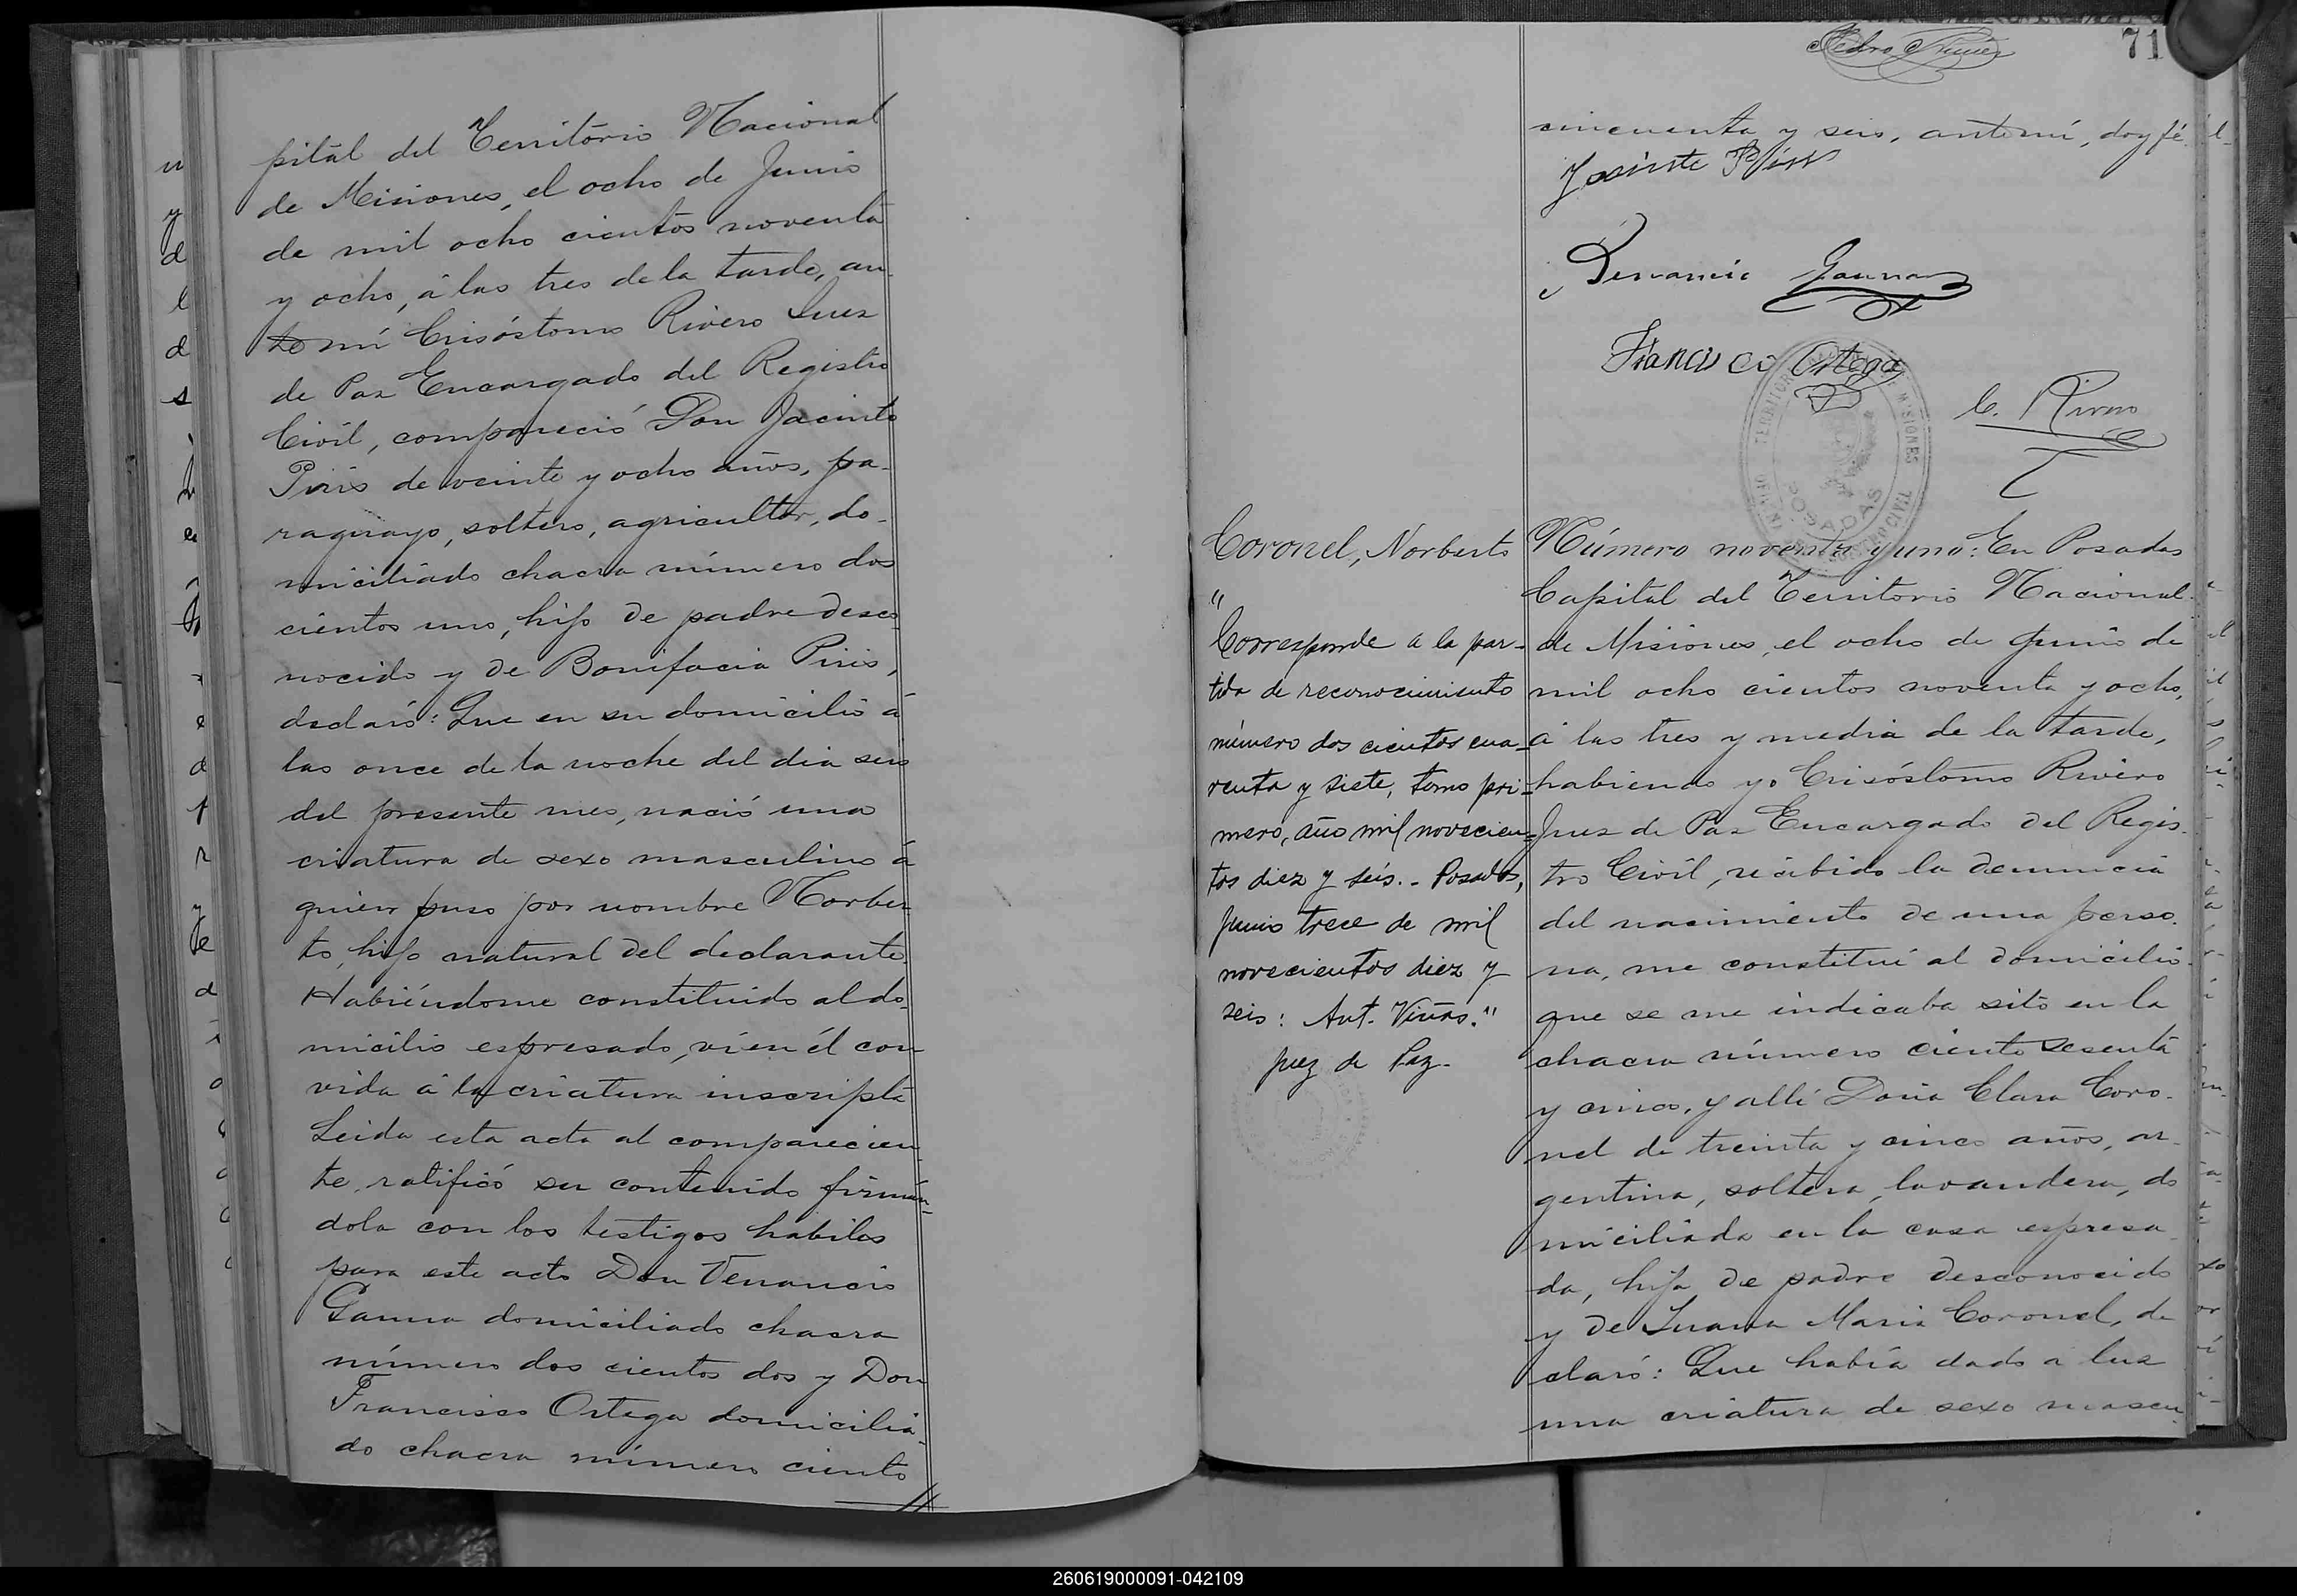 pital del Territorio Nacional
de Misiones, el ocho de Junio
de mil ocho cientos noventa
y ocho, á las tres de la tarde, an-
te mí Crisóstomo Rivero Juez
de Paz Encargado del Registro
Civil, compareció Don Jacinto
Piris de veinte y ocho años, pa-
raguayo, soltero, agricultor, do-
miciliado chacra número dos
cientos uno, hijo de padre desco-
nocido y de Bonifacia Piris,
declaró: Que en su domicilio á
las once de la noche del dia seis
del presente mes, nació una
criatura de sexo masculino á
quien puso por nombre Norber-
to, hijo natural del declarante.
Habiéndome constituido al do-
micilio espresado, ví en él con
vida á la criatura inscripta
Leida esta acta al comparecien-
te, ratificó su contenido firmán-
dola con los testigos habiles
para este acto Don Venancio
Gauna domiciliado chacra
número dos cientos dos y Don
Francisco Ortega domicilia-
do chacra número ciento
71
cincuenta y seis, ante mí, doy fé.
Jasinte Piris
Venancio Gauna
Francisco Ortega
C. Rivero
TERRITORIO MISIONES
POSADAS
REGISTRO CIVIL
Coronel, Norberto
"
Corresponde a la par-
tida de reconocimiento
número dos cientos cua-
renta y siete, tomo pri-
mero, año mil novecien-
tos diez y seis. - Posadas,
junio trece de mil
novecientos diez y
seis: Ant. Viñas."
juez de Paz.
Número noventa y uno: En Posadas
Capital del Territorio Nacional
de Misiones, el ocho de Junio de
mil ocho cientos noventa y ocho,
á las tres y media de la tarde,
habiendo yo Crisóstomo Rivero
Juez de Paz Encargado del Regis-
tro Civil, recibido la denuncia
del nacimiento de una perso-
na, me constituí al domicilio
que se me indicaba sito en la
chacra número ciento sesenta
y cinco, y allí Doña Clara Coro-
nel de treinta y cinco años, ar-
gentina, soltera, lavandera, do
miciliada en la casa espresa-
da, hija de padre desconocido
y de Juana Maria Coronel, de
claró: Que había dado a luz
una criatura de sexo mascu-
260619000091-042109